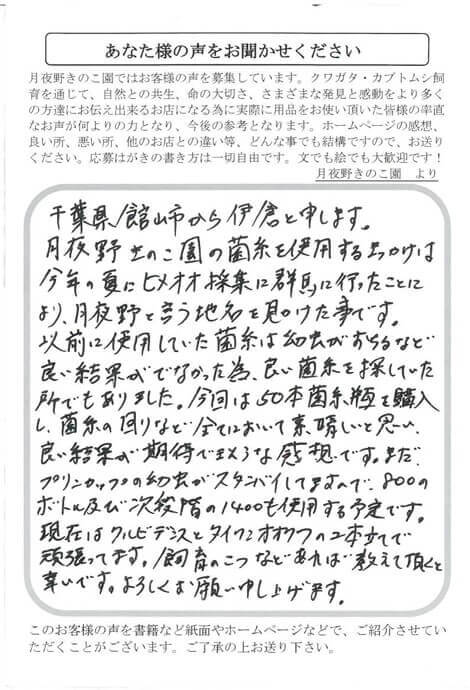 あなた様の声をお聞かせください
月夜野きのこ園ではお客様の声を募集しています。クワガタ・カブトムシ飼
育を通じて、自然との共生、命の大切さ、さまざまな発見と感動をより多く
の方達にお伝え出来るお店になる為に実際に用品をお使い頂いた皆様の率直
なお声が何よりの力となり、今後の参考となります。ホームページの感想、
良い所、悪い所、他のお店との違い等、どんな事でも結構ですので、お送り
ください。応募はがきの書き方は一切自由です。文でも絵でも大歓迎です！
月夜野きのこ園　より
千葉県館山市から伊倉と申します。
月夜野きのこ園の菌糸を使用するきっかけは
今年の夏にヒメオオ採集に群馬に行ったことに
より、月夜野と言う地名を見かけた事です。
以前に使用していた菌糸は幼虫がずらるなど
良い結果がでなかった為、良い菌糸を探していた
所でもありました。今回は50本菌糸瓶を購入
し、菌糸の回りなど全てにおいて素晴しいと思い、
良い結果が期待できそうな感想です。まだ
プリンカップの幼虫がスタンバイしてますので、800の
ボトル及び次段階の1400も使用する予定です。
現在はクルビデンスとタイワンオオクワの2本立てで
頑張ってます。飼育のこつなどあれば教えて頂くと
幸いです。よろしくお願い申し上げます。
このお客様の声を書籍など紙面やホームページなどで、ご紹介させてい
ただくことがございます。ご了承の上お送り下さい。